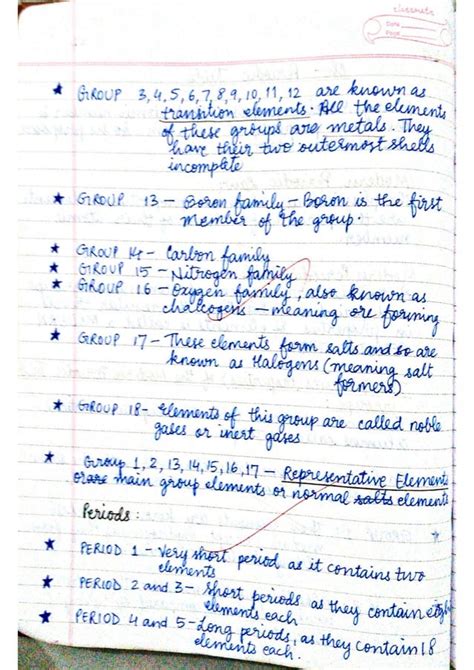 classmate
Date
Page
★ GROUP 3,4,5,6,7,8,9,10,11,12 are known as
transition elements. All the elements
of these groups are metals. They
have their two outermost shells
incomplete
★ GROUP 13 - Boron family - Boron is the first
member of the group.
★ GROUP 14 - Carbon family
★ GROUP 15 - Nitrogen family
★ GROUP 16 - Oxygen family, also known as
chalcogens - meaning ore forming
★ GROUP 17 - These elements form salts and so are
known as Halogens (meaning salt
formers)
★ GROUP 18 - Elements of this group are called noble
gases or inert gases
★ Group 1, 2, 13, 14, 15, 16, 17 - Representative Elements
or main group elements or normal salts elements
Periods :
★ PERIOD 1 - Very short period as it contains two
elements
★ PERIOD 2 and 3 - Short periods as they contain eight
elements each
★ PERIOD 4 and 5 - Long periods, as they contain 18
elements each.